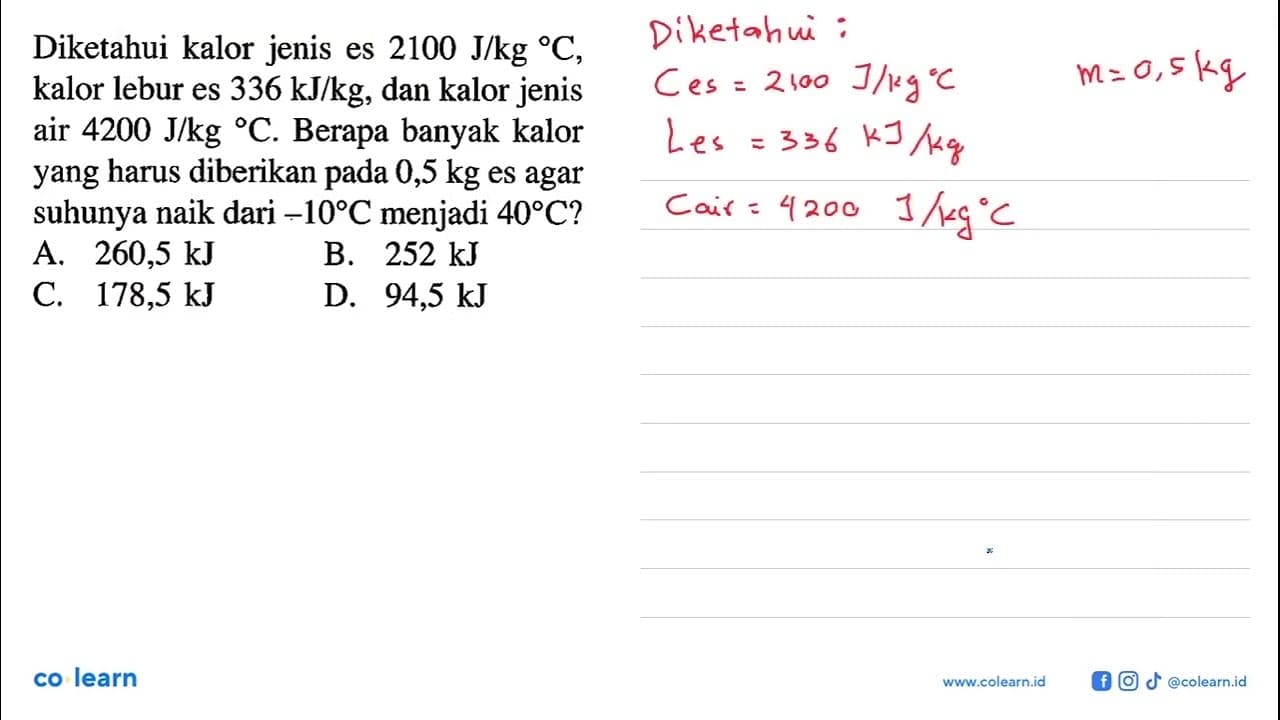 Diketahui kalor jenis es 2100 J/kg °C,
kalor lebur es 336 kJ/kg, dan kalor jenis
air 4200 J/kg °C. Berapa banyak kalor
yang harus diberikan pada 0,5 kg es agar
suhunya naik dari –10°C menjadi 40°C?
A. 260,5 kJ B. 252 kJ
C. 178,5 kJ D. 94,5 kJ
Diketahui :
Ces = 2100 J/kg°C m = 0,5 kg
Les = 336 kJ/kg
Cair = 4200 J/kg°C
co learn
www.colearn.id @colearn.id